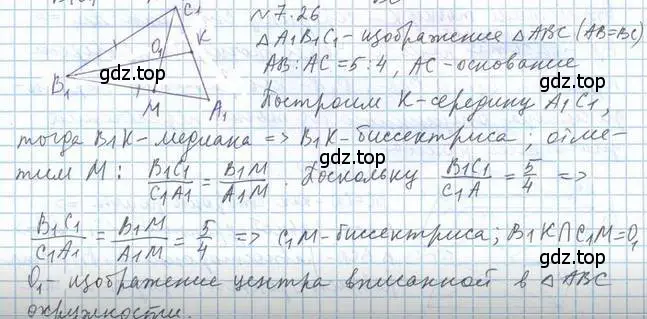 N 7.26
C₁
O₁
K
B₁
M
A₁
ΔA₁B₁C₁ - изображение ΔABC (AB=BC)
AB:AC=5:4, AC-основание
Построим K-середину A₁C₁,
тогда B₁K-медиана => B₁K-биссектриса; отме-
тим M: B₁C₁/C₁A₁ = B₁M/A₁M. Поскольку B₁C₁/C₁A = 5/4 =>
B₁C₁/C₁A₁ = B₁M/A₁M = 5/4 => C₁M-биссектриса; B₁K∩C₁M=O₁
O₁-изображение центра вписанной в ΔABC
окружности.
gdz.top
gdz.top
gdz.top
gdz.top
gdz.top
gdz.top